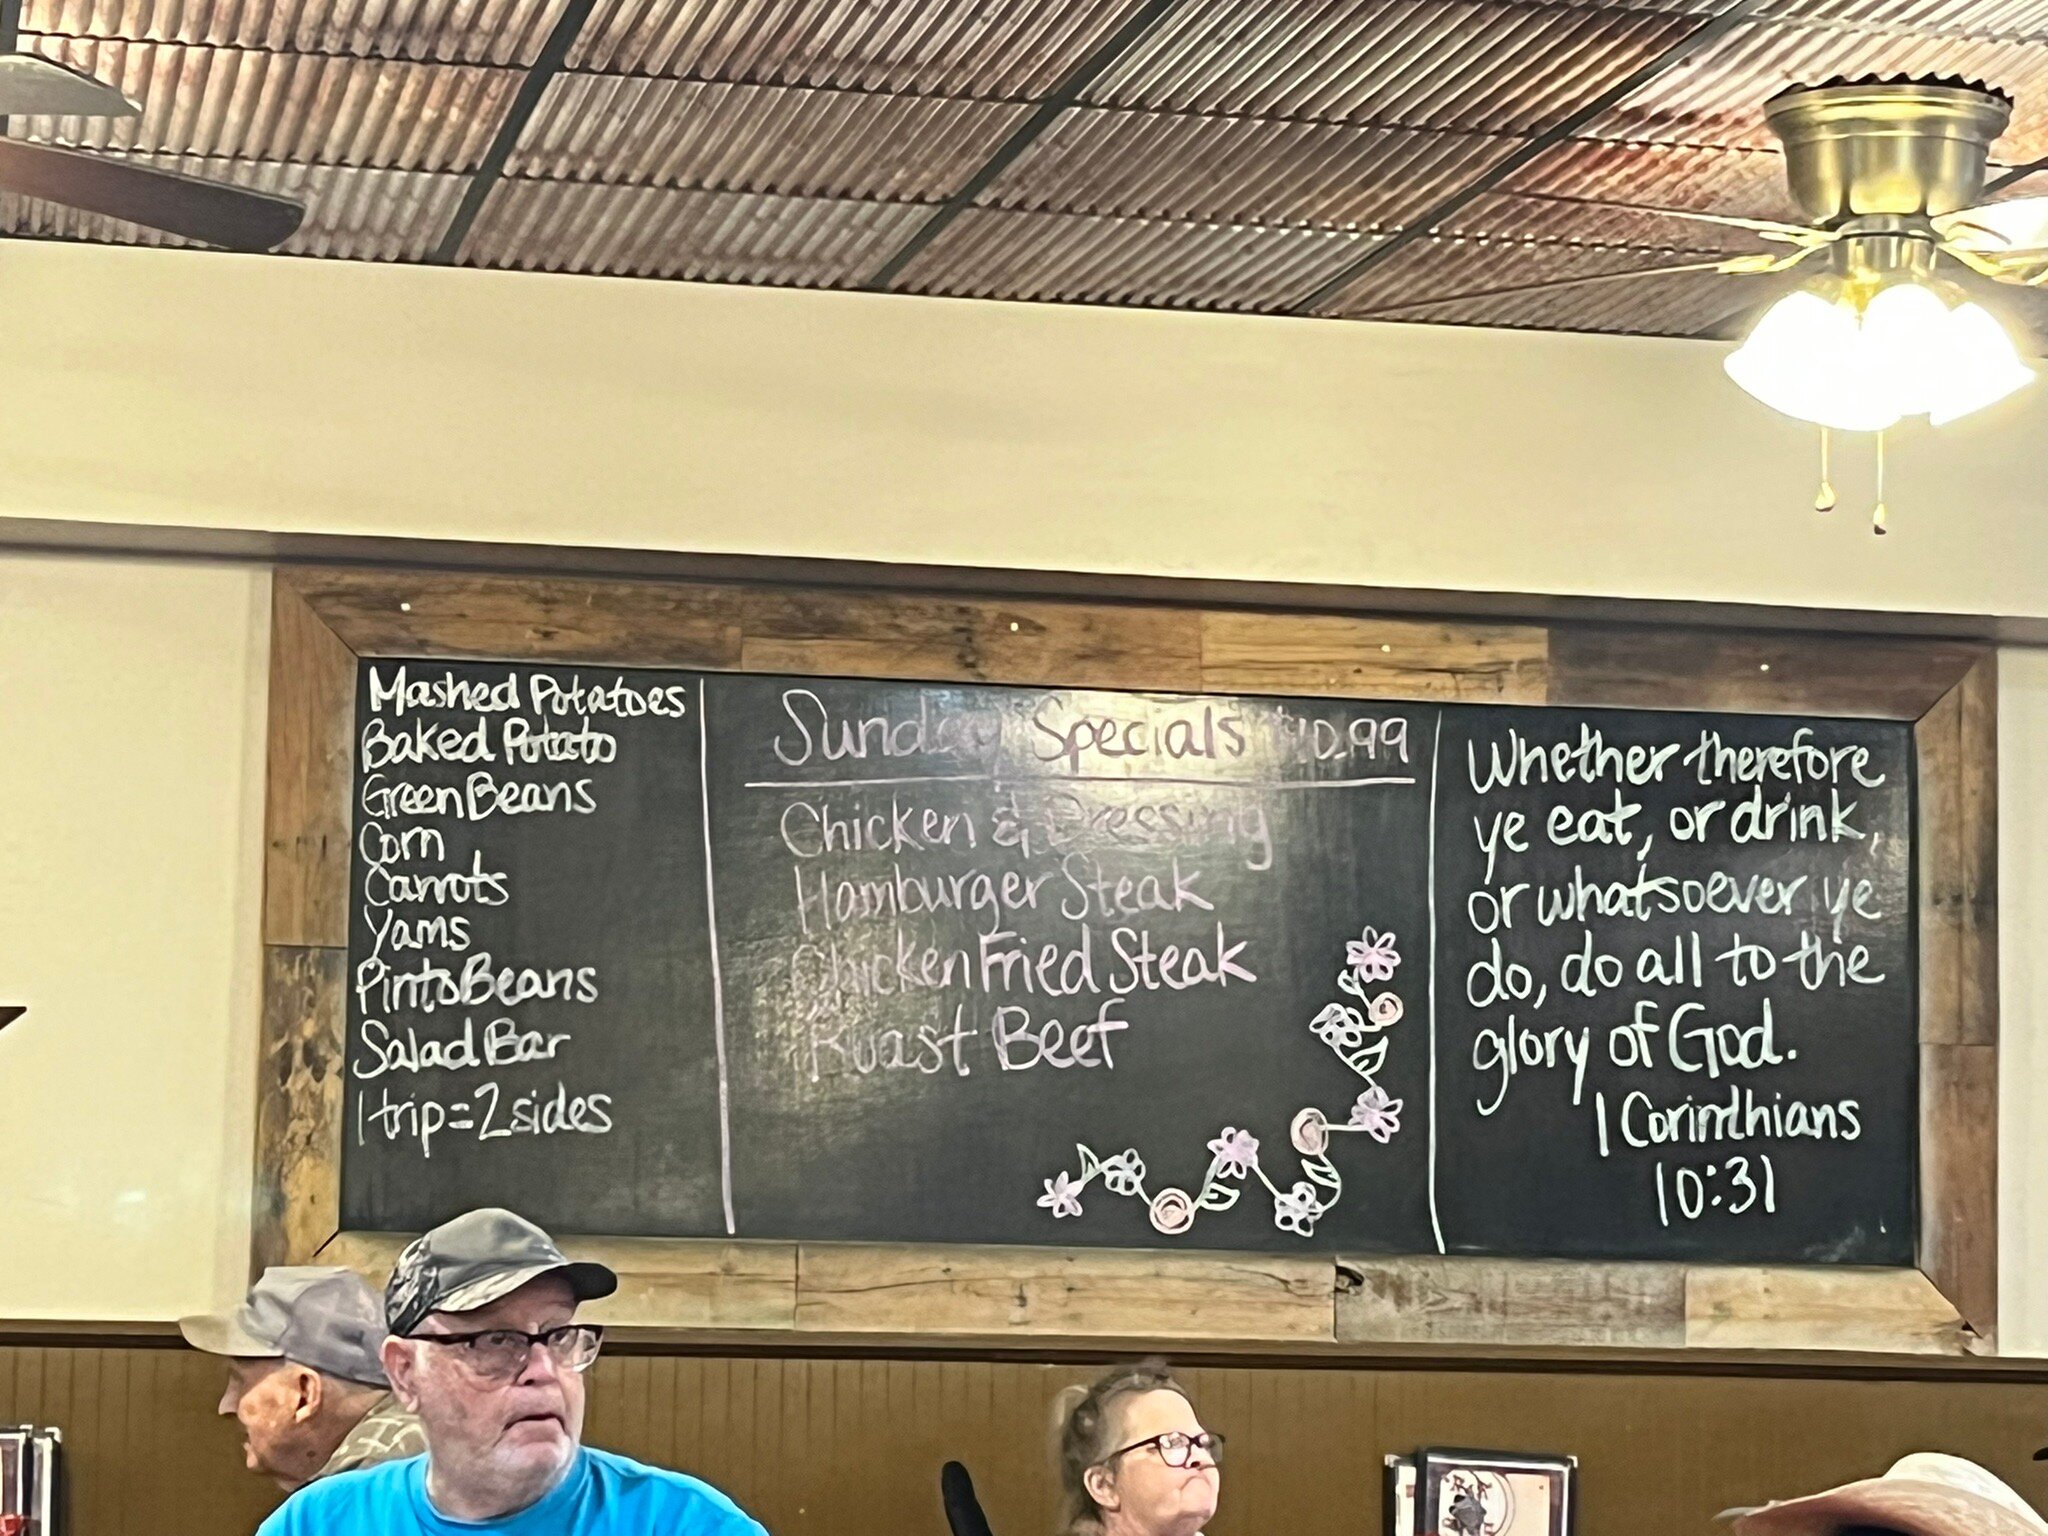 Mashed Potatoes
Baked Potato
Green Beans
Corn
Carrots
Yams
Pinto Beans
Salad Bar
1 trip = 2 sides
Sunday Specials $10.99
Chicken & Dressing
Hamburger Steak
Chicken Fried Steak
Roast Beef
Whether therefore
ye eat, or drink,
or whatsoever ye
do, do all to the
glory of God.
1 Corinthians
10:31